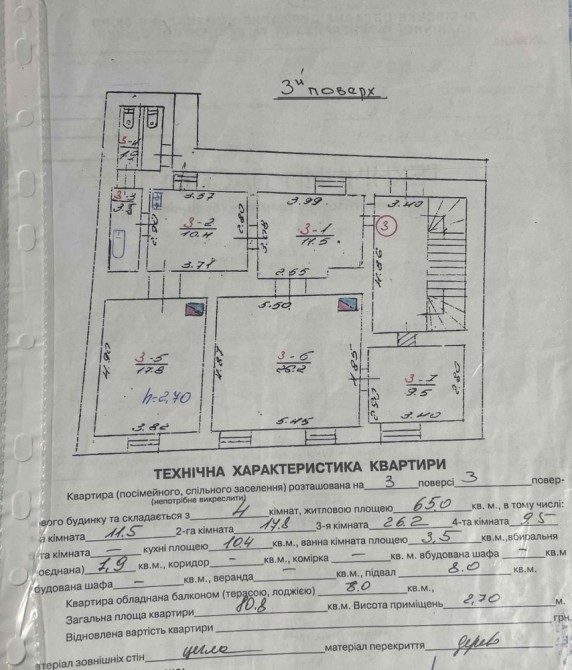 3й поверх
3-4
3.57
3.99
3.40
3-3
3-2
10.4
2.90
2.80
3.08
3-1
11.5
3
4.86
3.71
2.65
5.50
3-5
17.8
4.90
h=2,70
3.82
3-6
26.2
4.87
4.85
5.45
3-7
9.5
2.80
3.40
ТЕХНІЧНА ХАРАКТЕРИСТИКА КВАРТИРИ
Квартира (посімейного, спільного заселення) розташована на 3 поверсі 3 повер-
(непотрібне викреслити)
ового будинку та складається з 4 кімнат, житловою площею 65.0 кв. м., в тому числі:
кімната 11.5 2-га кімната 17.8 3-я кімната 26.2 4-та кімната 9.5
та кімната — кухні площею 10.4 кв.м., ванна кімната площею 3,5 кв.м.,вбиральня
оєднана) 1,9 кв.м., коридор — кв.м., комірка — кв. м. вбудована шафа — кв.м
будована шафа — кв.м., веранда — кв.м., підвал 8.0 кв.м.
Квартира обладнана балконом (терасою, лоджією) 8.0 кв.м.,
Загальна площа квартири 80.8 кв.м. Висота приміщень 2,70 м.
Відновлена вартість квартири грн.
атеріал зовнішніх стін цегла матеріал перекриття дерев